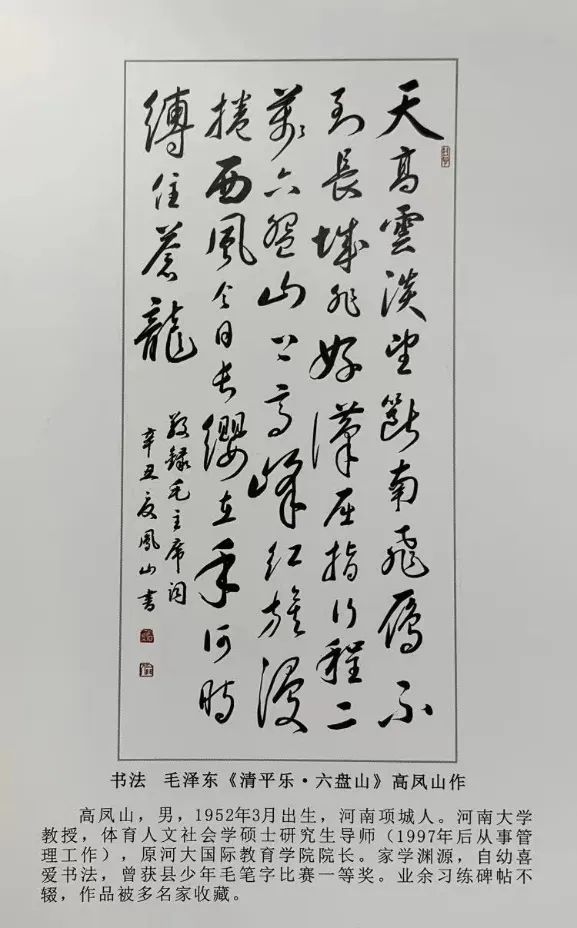 天高雲淡望斷南飛雁不
到長城非好漢屈指行程二
萬六盤山上高峰紅旗漫
捲西風今日長纓在手何時
縛住蒼龍
敬録毛主席词
辛丑夏鳳山書
书法 毛泽东《清平乐·六盘山》高凤山作
高凤山，男，1952年3月出生，河南项城人。河南大学
教授，体育人文社会学硕士研究生导师（1997年后从事管
理工作），原河大国际教育学院院长。家学渊源，自幼喜
爱书法，曾获县少年毛笔字比赛一等奖。业余习练碑帖不
辍，作品被多名家收藏。